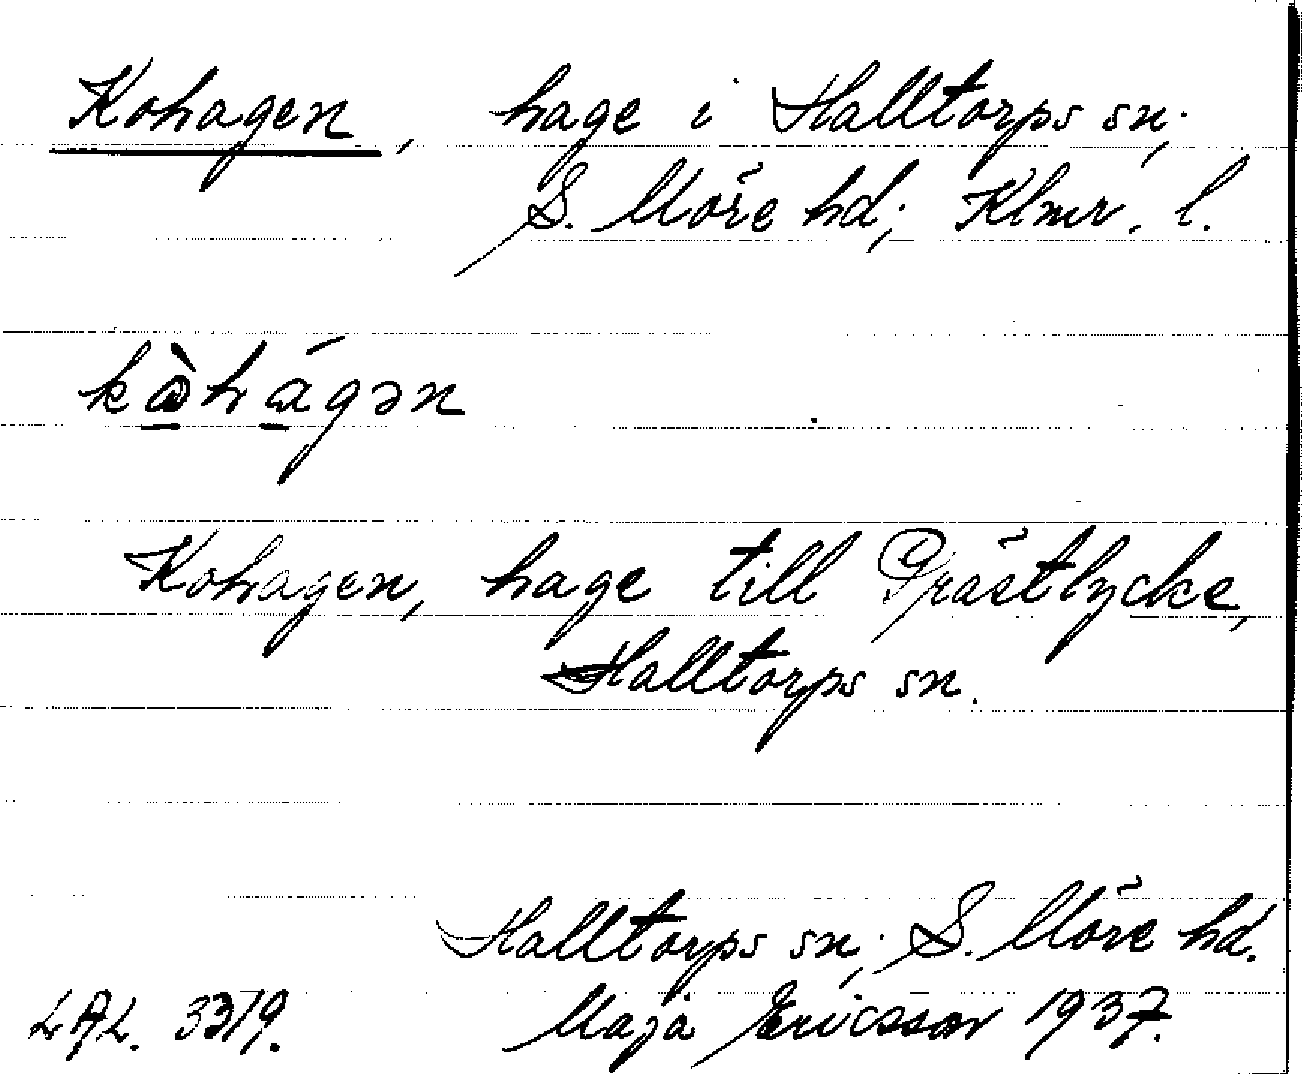 Kohagen, hage i Halltorps sn,
S. Möre hd, Klmr. l.
kòhágən
Kohagen, hage till Prästlycke,
Halltorps sn.
Halltorps sn, S. Möre hd.
LAL. 3319. Maja Ericsson 1937.